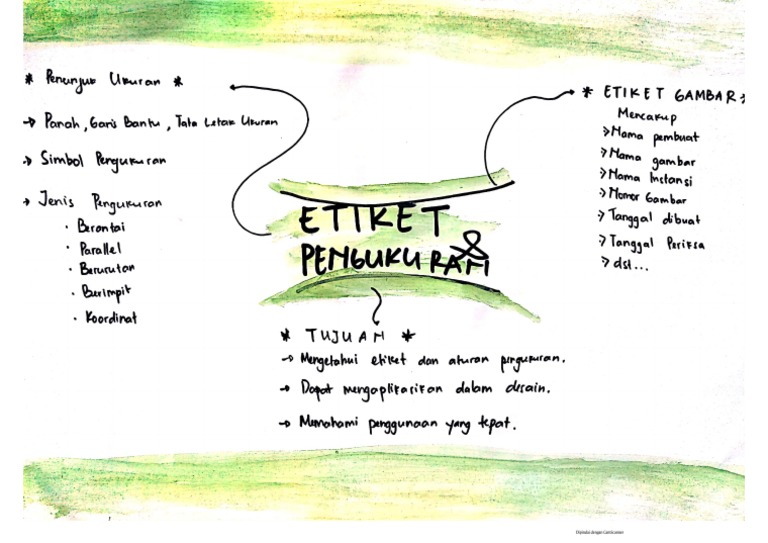 * Penunjuk Ukuran *
→ Panah, Garis Bantu, Tata Letak Ukuran
→ Simbol Pengukuran
→ Jenis Pengukuran
• Berantai
• Parallel
• Berurutan
• Berimpit
• Koordinat
ETIKET
&
PENGUKURAN
* ETIKET GAMBAR *
Mencakup
> Nama pembuat
> Nama gambar
> Nama Instansi
> Nomor Gambar
> Tanggal dibuat
> Tanggal Periksa
> dst...
* TUJUAN *
→ Mengetahui etiket dan aturan pengukuran.
→ Dapat mengaplikasikan dalam desain.
→ Memahami penggunaan yang tepat.
Dipindai dengan CamScanner